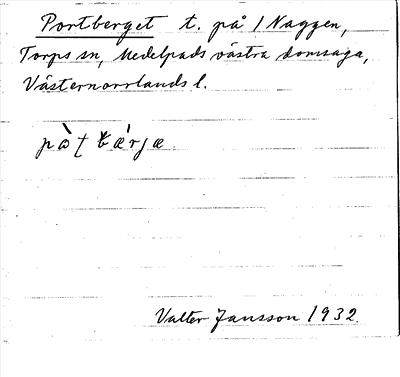 Portberget t. på 1 Naggen,
Torps sn, Medelpads västra domsaga,
Västernorrlands l.
Valter Jansson 1932.